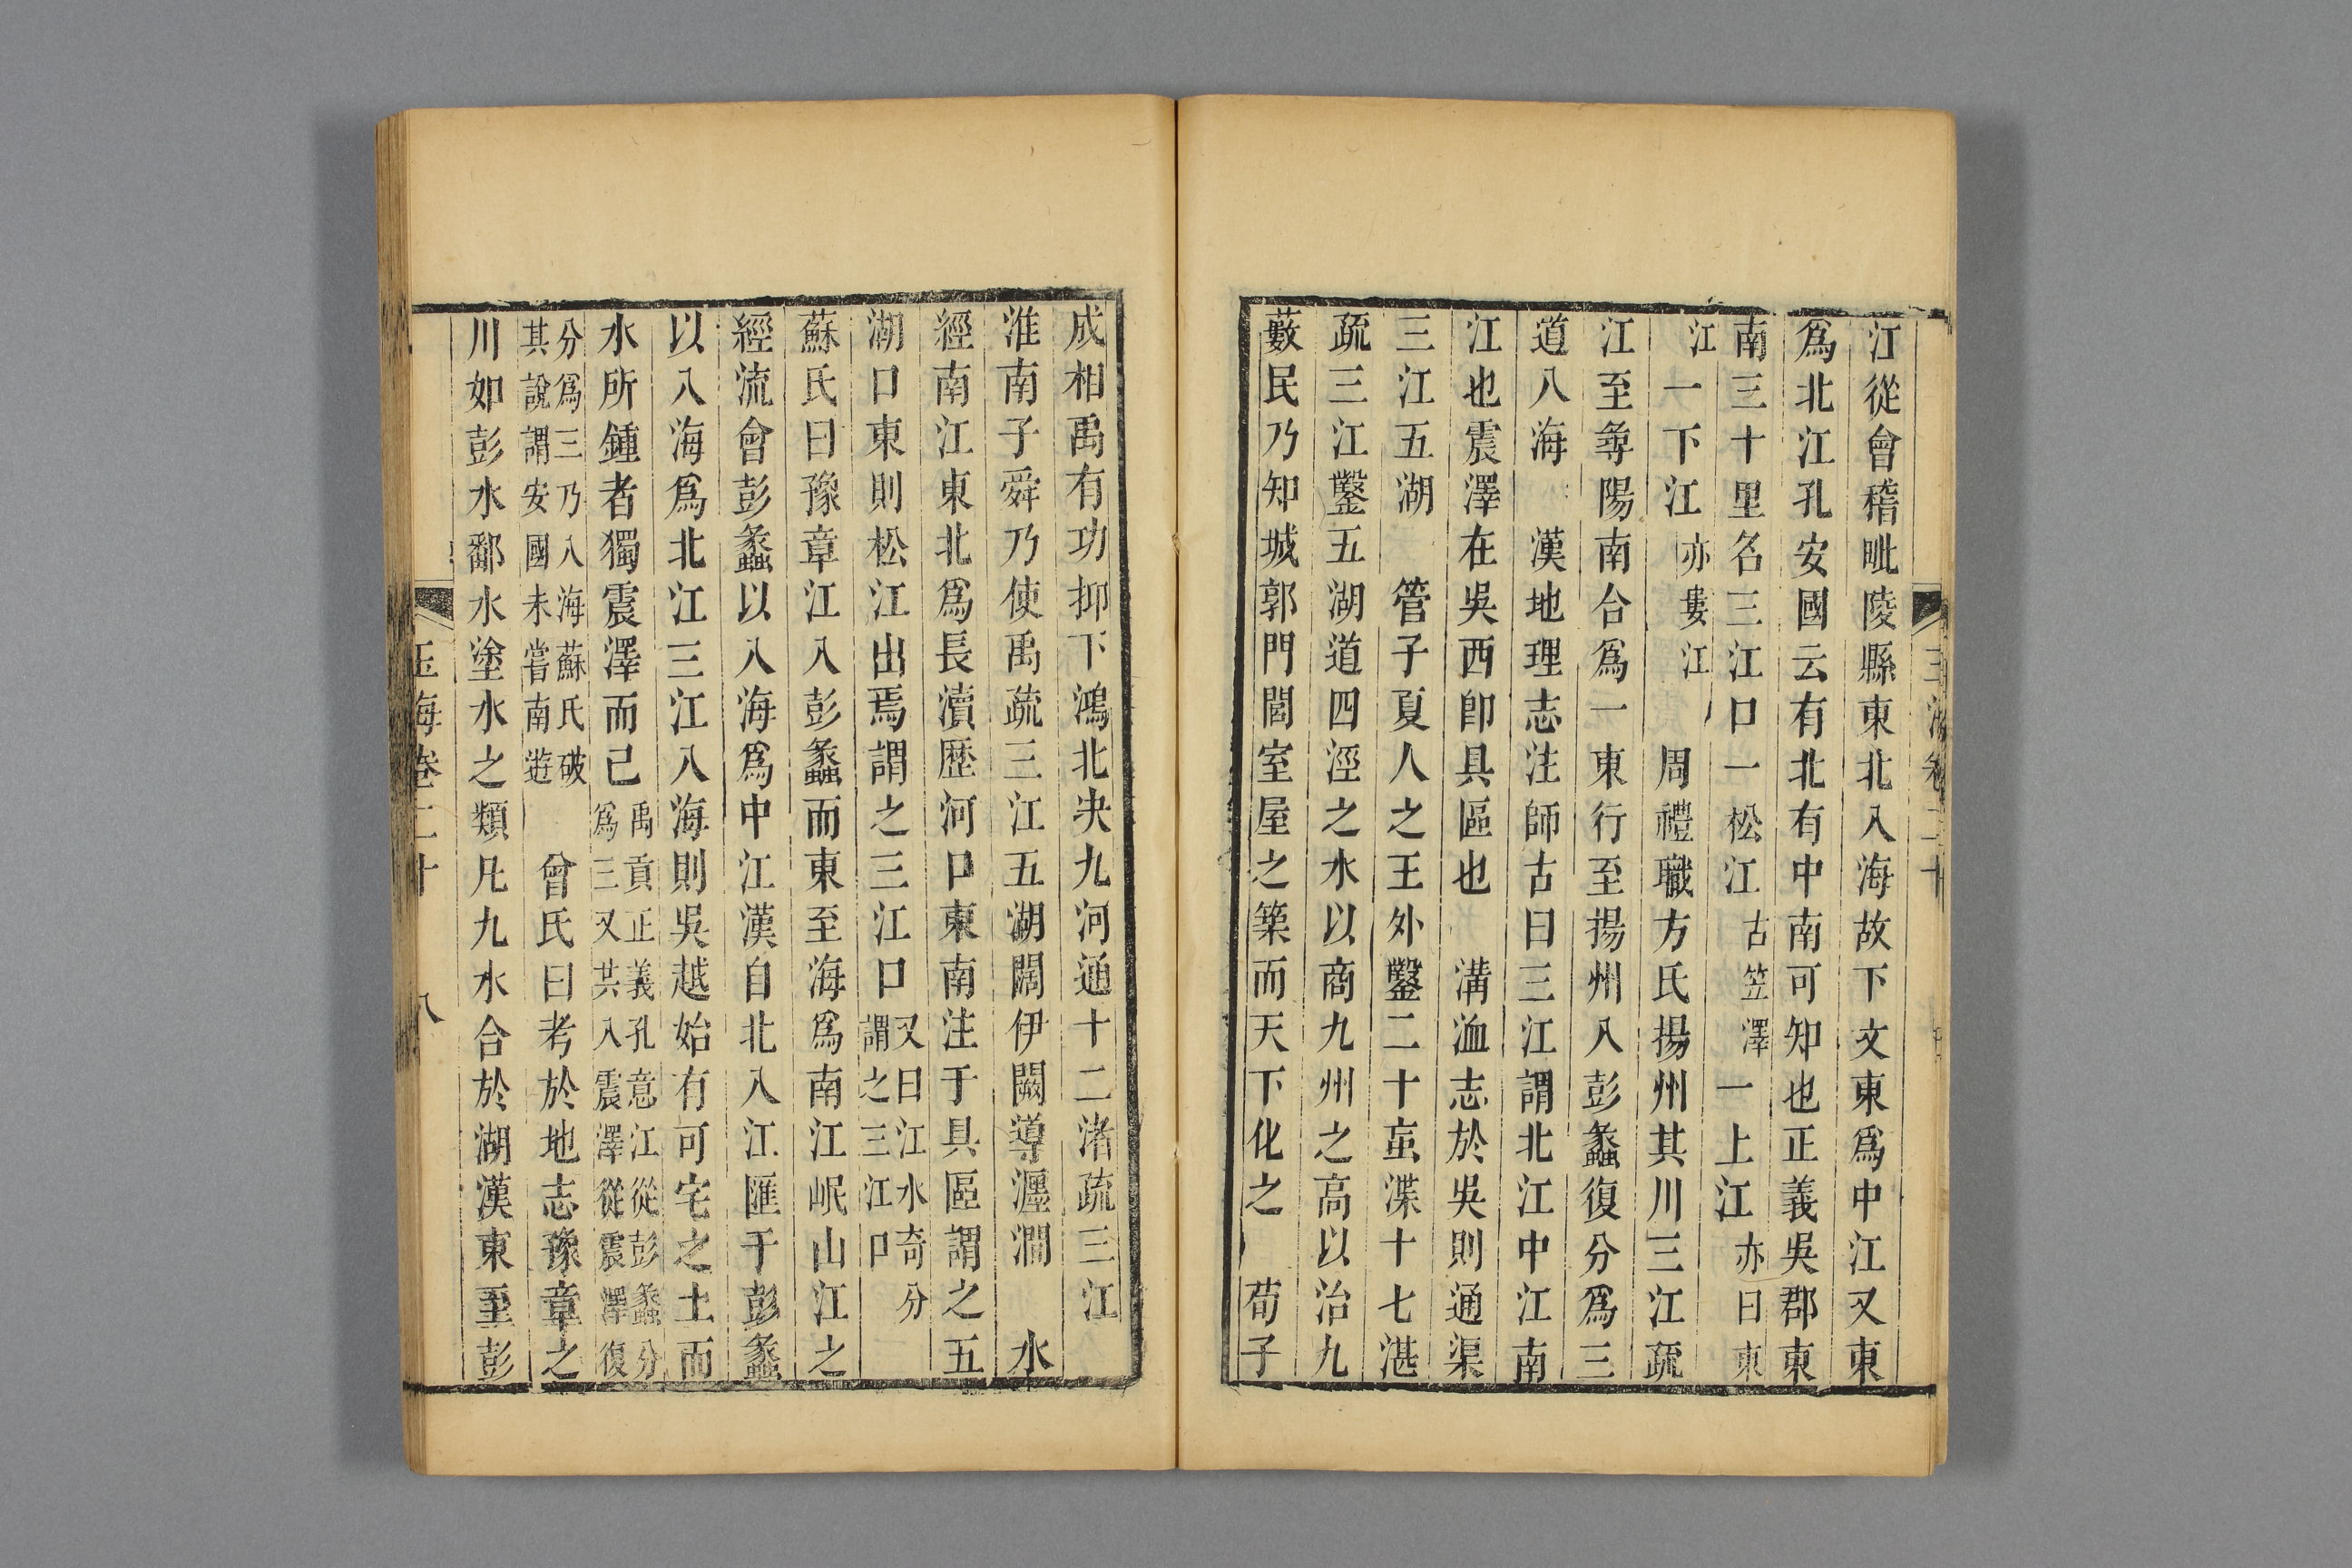 江從會稽毗陵縣東北入海故下文東爲中江又東
爲北江孔安國云有北有中南可知也正義吳郡東
南三十里名三江口一松江古笠澤一上江亦曰東
江一下江亦婁江 周禮職方氏揚州其川三江疏
江至尋陽南合爲一東行至揚州入彭蠡復分爲三
道入海 漢地理志注師古曰三江謂北江中江南
江也震澤在吳西卽具區也 溝洫志於吳則通渠
三江五湖 管子夏人之王外鑿二十䖟渫十七湛
疏三江鑿五湖道四涇之水以商九州之高以治九
藪民乃知城郭門閭室屋之築而天下化之 荀子
成相禹有功抑下鴻北决九河通十二渚疏三江
淮南子舜乃使禹疏三江五湖闢伊闕導瀍澗 水
經南江東北爲長瀆歷河口東南注于具區謂之五
湖口東則松江出焉謂之三江口又曰江水奇分謂之三江口
蘇氏曰豫章江入彭蠡而東至海爲南江岷山江之
經流會彭蠡以入海爲中江漢自北入江匯于彭蠡
以入海爲北江三江入海則吳越始有可宅之土而
水所鍾者獨震澤而已禹貢正義孔意江從彭蠡分爲三又共入震澤從震澤復
分爲三乃入海蘇氏破其說謂安國未嘗南遊 曾氏曰考於地志豫章之
川如彭水鄱水塗水之類凡九水合於湖漢東至彭
玉海卷二十 八